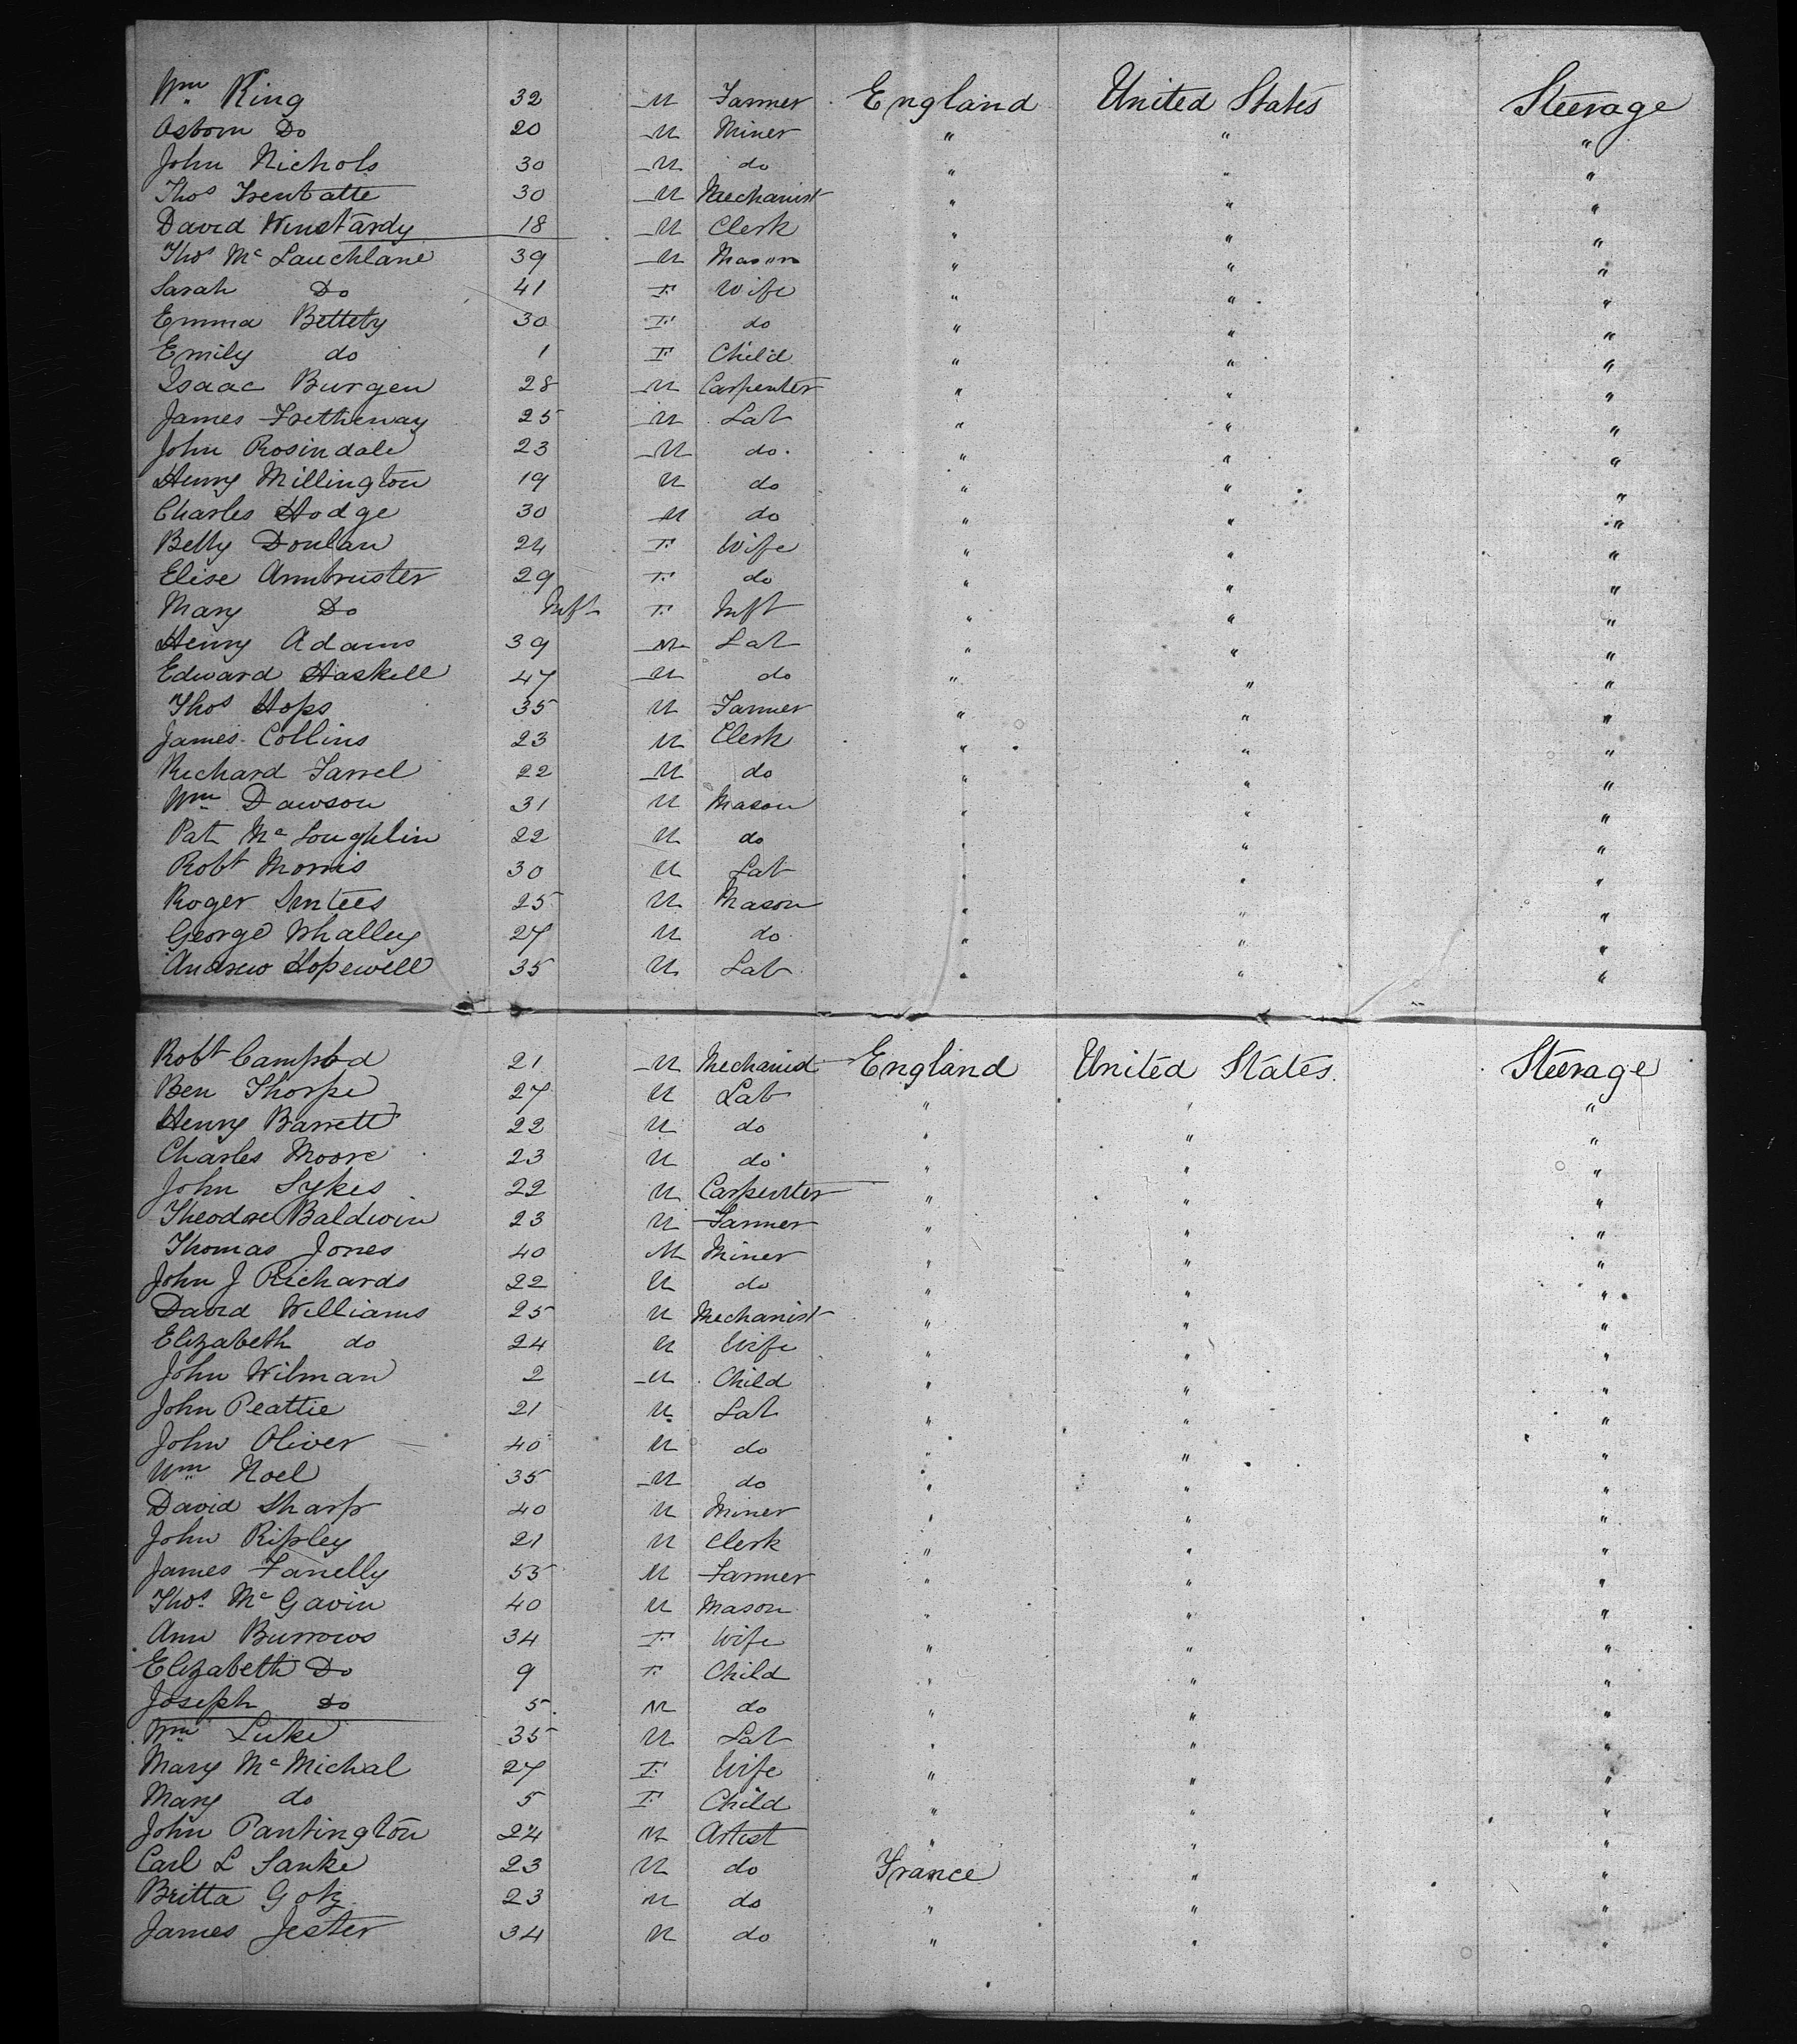 Wm King 32 M Farmer England United States Steerage
Osborn Do 20 M Miner " " "
John Nichols 30 M do " " "
Thos Trentatte 30 M Mechanist " " "
David Winstardy 18 M Clerk " " "
Thos Mc Lauchlane 39 M Mason " " "
Sarah Do 41 F Wife " " "
Emma Bettety 30 F do " " "
Emily do 1 F Child " " "
Isaac Burgen 28 M Carpenter " " "
James Tretheway 25 M Lab " " "
John Rosindale 23 M do " " "
Henry Millington 19 M do " " "
Charles Hodge 30 M do " " "
Betty Donlan 24 F Wife " " "
Elise Armbruster 29 F do " " "
Mary Do Inft F Inft " " "
Henry Adams 39 M Lab " " "
Edward Haskell 47 M do " " "
Thos Hops 35 M Farmer " " "
James Collins 23 M Clerk " " "
Richard Farrel 22 M do " " "
Wm Dawson 31 M Mason " " "
Pat Mc Loughlin 22 M do " " "
Robt Morris 30 M Lab " " "
Roger 25 M Mason " " "
George Whalley 27 M do " " "
Andrew Hopewell 35 M Lab " " "
Robt Campbd 21 M Mechanist England United States Steerage
Ben Thorpe 27 M Lab " " "
Henry Barrett 22 M do " " "
Charles Moore 23 M do " " "
John Sykes 22 M Carpenter " " "
Theodore Baldwin 23 M Farmer " " "
Thomas Jones 40 M Miner " " "
John J Richards 22 M do " " "
David Williams 25 M Mechanist " " "
Elizabeth do 24 M Wife " " "
John Wilman 2 M Child " " "
John Peattie 21 M Lab " " "
John Oliver 40 M do " " "
Wm Noel 35 M do " " "
David Sharp 40 M Miner " " "
John Ripley 21 M Clerk " " "
James Fanelly 55 M Farmer " " "
Thos Mc Gavin 40 M Mason " " "
Ann Burrows 34 F Wife " " "
Elizabeth Do 9 F Child " " "
Joseph Do 5 M do " " "
Wm Luke 35 M Lab " " "
Mary Mc Michal 27 F Wife " " "
Mary do 5 F Child " " "
John Pantington 24 M Artist " " "
Carl L Sanke 23 M do France " "
Britta Gotz 23 M do " " "
James Jester 34 M do " " "